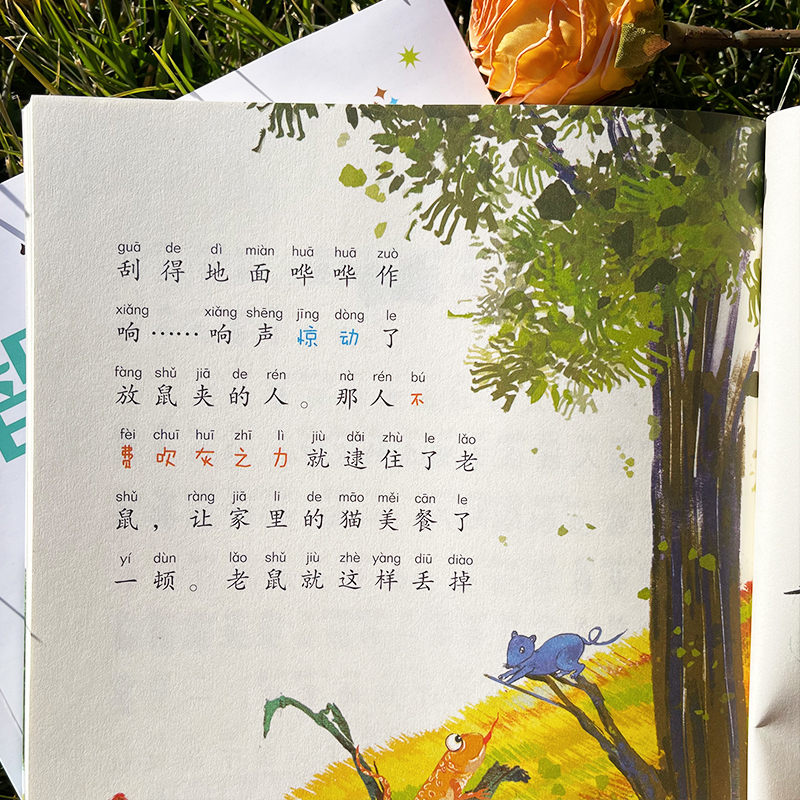 guā de dì miàn huā huā zuò
刮得地面哗哗作
xiǎng xiǎng shēng jīng dòng le
响……响声惊动了
fàng shǔ jiā de rén nà rén bú
放鼠夹的人。那人不
fèi chuī huī zhī lì jiù dǎi zhù le lǎo
费吹灰之力就逮住了老
shǔ ràng jiā li de māo měi cān le
鼠，让家里的猫美餐了
yí dùn lǎo shǔ jiù zhè yàng diū diào
一顿。老鼠就这样丢掉